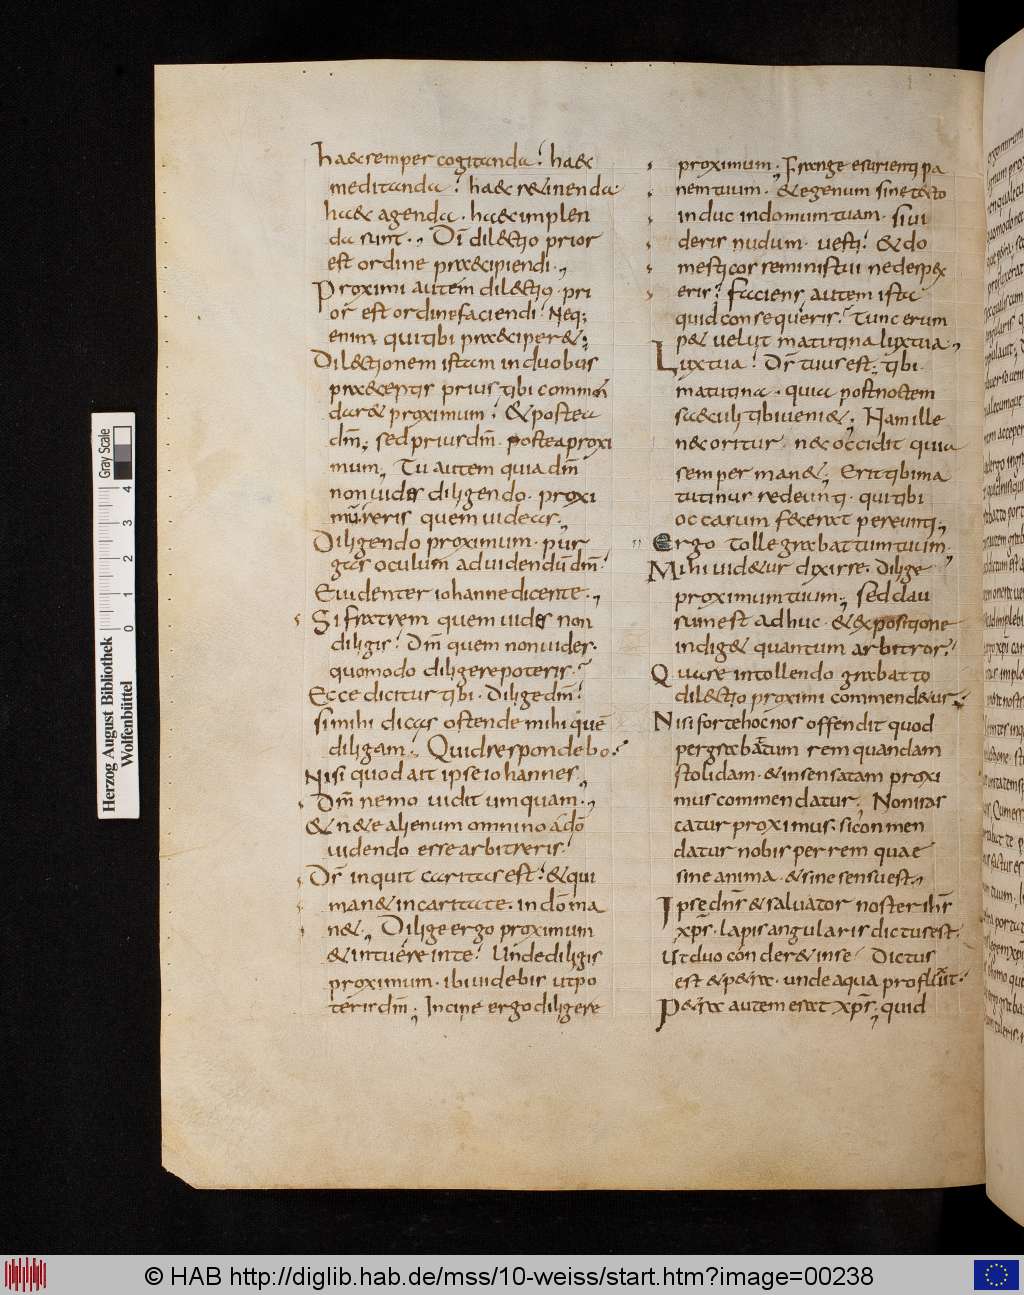 haec semper cogitanda? haec
meditanda? haec retinenda
haec agenda. haec implen
da sunt., Dī dilectio prior
est ordine praecipiendi.,
Proximi autem dilectio. pri
or est ordine faciendi? Neq;
enim qui tibi praeciperet;
Dilectionem istam in duobus
praeceptis prius tibi commen
daret proximum? & postea
dm̄; sed prius dm̄. postea proxi
mum, Tu autem quia dm̄
non uides diligendo. proxi
mū. reris quem uideas.,
Diligendo proximum. pur
gas oculum ad uidendū dm̄?
Euidenter iohanne dicente.,
Si fratrem quem uides non
diligis? Dm̄ quem non uides.
quomodo diligere poteris?
Ecce dicitur tibi. Dilige dm̄?
si mihi dicas ostende mihi quē
diligam. Quid respondebo?
Nisi quod ait ipse iohannes,
Dm̄ nemo uidit umquam.,
& ne te alienum omnino a dō
uidendo esse arbitreris?
Ds̄ inquit caritas est? & qui
manet in caritate. in dō ma
net, Dilige ergo proximum
& intuere in te? Unde diligis
proximum. ibi uidebis ut po
teris dm̄; Incipe ergo diligere
proximum; Frange esurienti pa
nem tuum. & egenum sine tecto
induc in domum tuam. si ui
deris nudum. uesti? & do
mesticos seminis tui ne despex
eris? Faciens autem ista
quid consequeris? Tunc erum
pet velut matutina lux tua.,
Lux tua? Ds̄ tuus est; tibi.
matutina. quia post noctem
saeculi tibi ueniet; Nam ille
nec oritur. nec occidit quia
semper manet; Erit tibi ma
tutinus redeunti. qui tibi
occasum fecerat pereunti;
Ergo tolle grabattum tuum.
Mihi uidetur dixisse. Dilige
proximum tuum; sed clau
sum est adhuc. & expositione
indiget quantum arbitror?
Quare in tollendo grabatto
dilectio proximi commendetur?
Nisi forte hoc nos offendit quod
per grabattum rem quandam
stolidam. & insensatam proxi
mus commendatur, Non iras
catur proximus. si commen
datur nobis per rem quae
sine anima. & sine sensu est.,
Ipse dn̄s & saluator noster ih̄s
xp̄s. lapis angularis dictus est.
Ut duo conderet in se? Dictus
est & petra. unde aqua proflueret?
Petra autem erat xp̄s; quid
Gray Scale
Herzog August Bibliothek
Wolfenbüttel
0 1 2 3 4
© HAB http://diglib.hab.de/mss/10-weiss/start.htm?image=00238